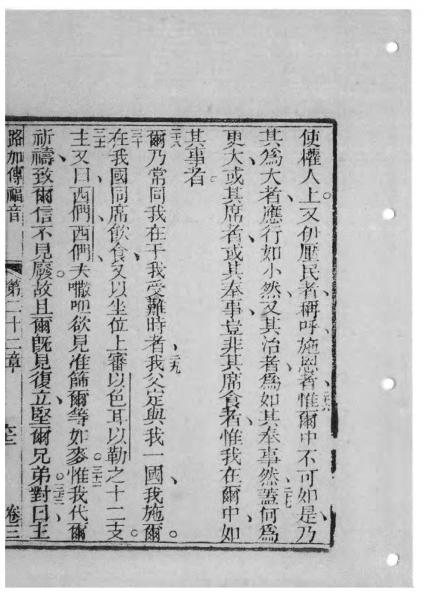 使權人上又伊壓民者稱呼施恩者惟爾中不可如是乃
二六
其爲大者應行如小然又其治者爲如其奉事然蓋何爲
二七
更大或其席者或其奉事豈非其席食者惟我在爾中如
其事者
二八
爾乃常同我在于我受難時者我父定與我一國我施爾
二九
三十
在我國同席飲食又以坐位上審以色耳以勒之十二支
三一
主又曰西們西們夫嗷呾欲見准篩爾等如麥惟我代爾
三二
祈禱致爾信不見廢故且爾旣見復立堅爾兄弟對曰主
三三
路加傳福音
第二十二章
卷三